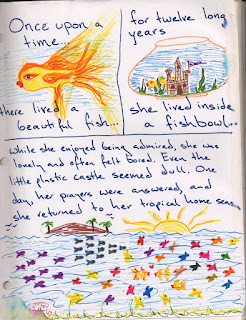 Once upon a
time...
there lived a
beautiful fish...
for twelve long
years
she lived inside
a fishbowl...
While she enjoyed being admired, she was
lonely and often felt bored. Even the
little plastic castle seemed dull. One
day her prayers were answered, and
she returned to her tropical home seas